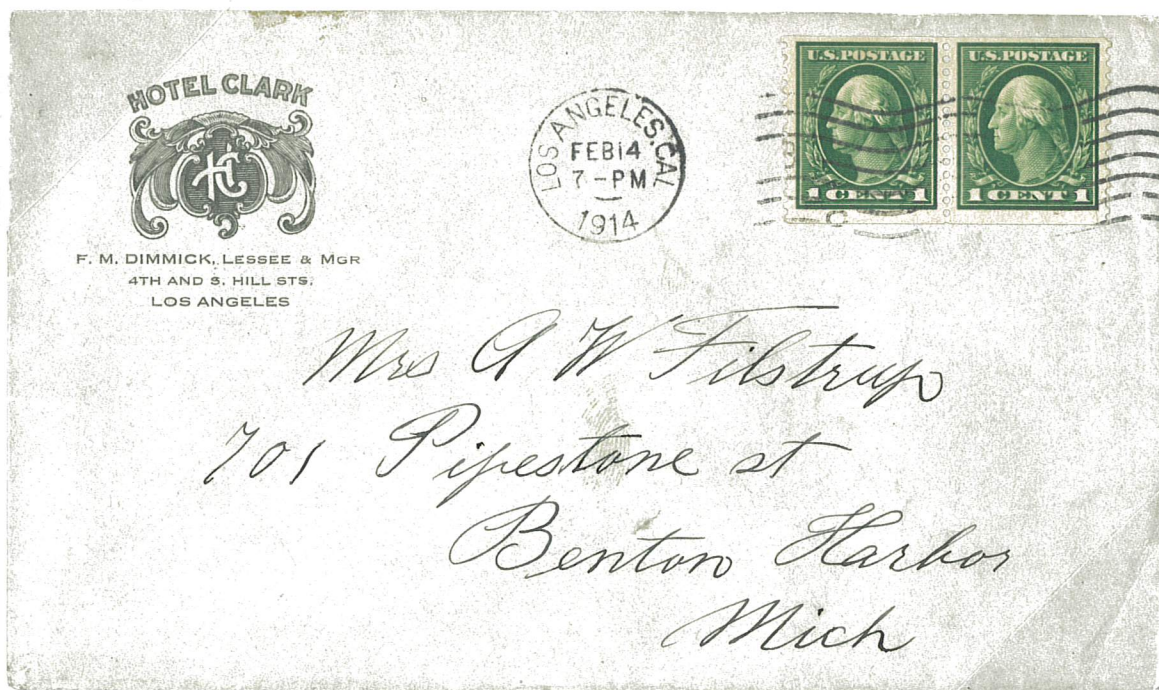 HOTEL CLARK
HC
F. M. DIMMICK, LESSEE & MGR
4TH AND S. HILL STS.
LOS ANGELES
LOS ANGELES, CAL
FEB 14
7-PM
1914
U.S. POSTAGE
1 CENT 1
U.S. POSTAGE
1 CENT 1
Mrs A W Filstrup
701 Pipestone st
Benton Harbor
Mich